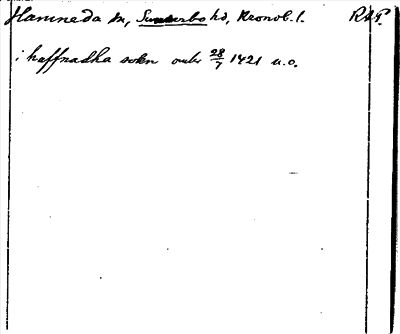 Hamneda sn, Sunnerbo hd, Kronob. l. RAP.
i haffnadha sokn omkr 28/7 1421 u.o.